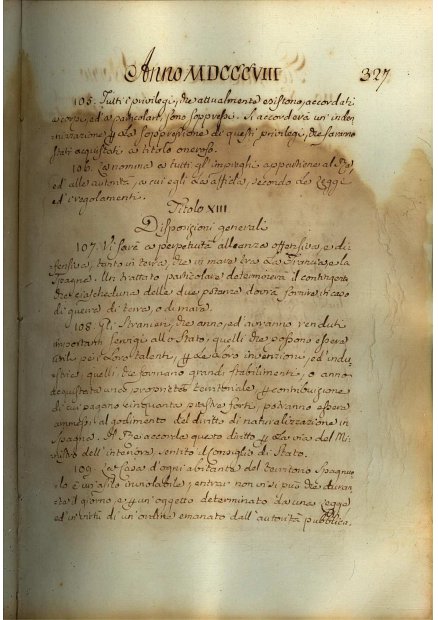 Anno MDCCCVIII 327
105. Tutti i privilegi, che attualmente esistono, accordati
a corpi, ed a particolari, sono soppressi. Si accorderà un' inden
nizzazione per la soppressione di questi privilegi, che saranno
stati acquistati a titolo oneroso.
106. La nomina a tutti gl' impieghi appartiene al Re,
ed alle autorità, a cui egli la affida, secondo le Leggi
ed i regolamenti.
Titolo XIII
Disposizioni generali
107. Vi sarà a perpetuità alleanza offensiva, e di
fensiva, tanto in terra, che in mare tra La Francia, e la
Spagna. Un trattato particolare determinerà il contingente
che ciascheduna delle due potenze dovrà fornire, in caso
di guerra di terra, o di mare.
108. Gli Stranieri, che anno, ed avranno renduti
importanti servigi allo Stato, quelli che possono essere
utili per i Loro talenti, per le Loro invenzioni, ed indu
strie, quelli che formano grandi stabilimenti, o anno
acquistata una proprietà territoriale per contribuzione
di cui pagano cinquanta piastre forti, potranno essere
ammessi al godimento del diritto di naturalizzazione in
Spagna. Il Re accorda questo diritto per la via del Mi
nistro dell' interiore, sentito il Consiglio di Stato.
109. La Casa d'ogni abitante del territorio Spagnuo
lo è un' asilo inviolabile, entrar non vi si può che duran
te il giorno, e per un' oggetto determinato da una Legge
ed in virtù di un' ordine emanato dall' autorità pubblica.